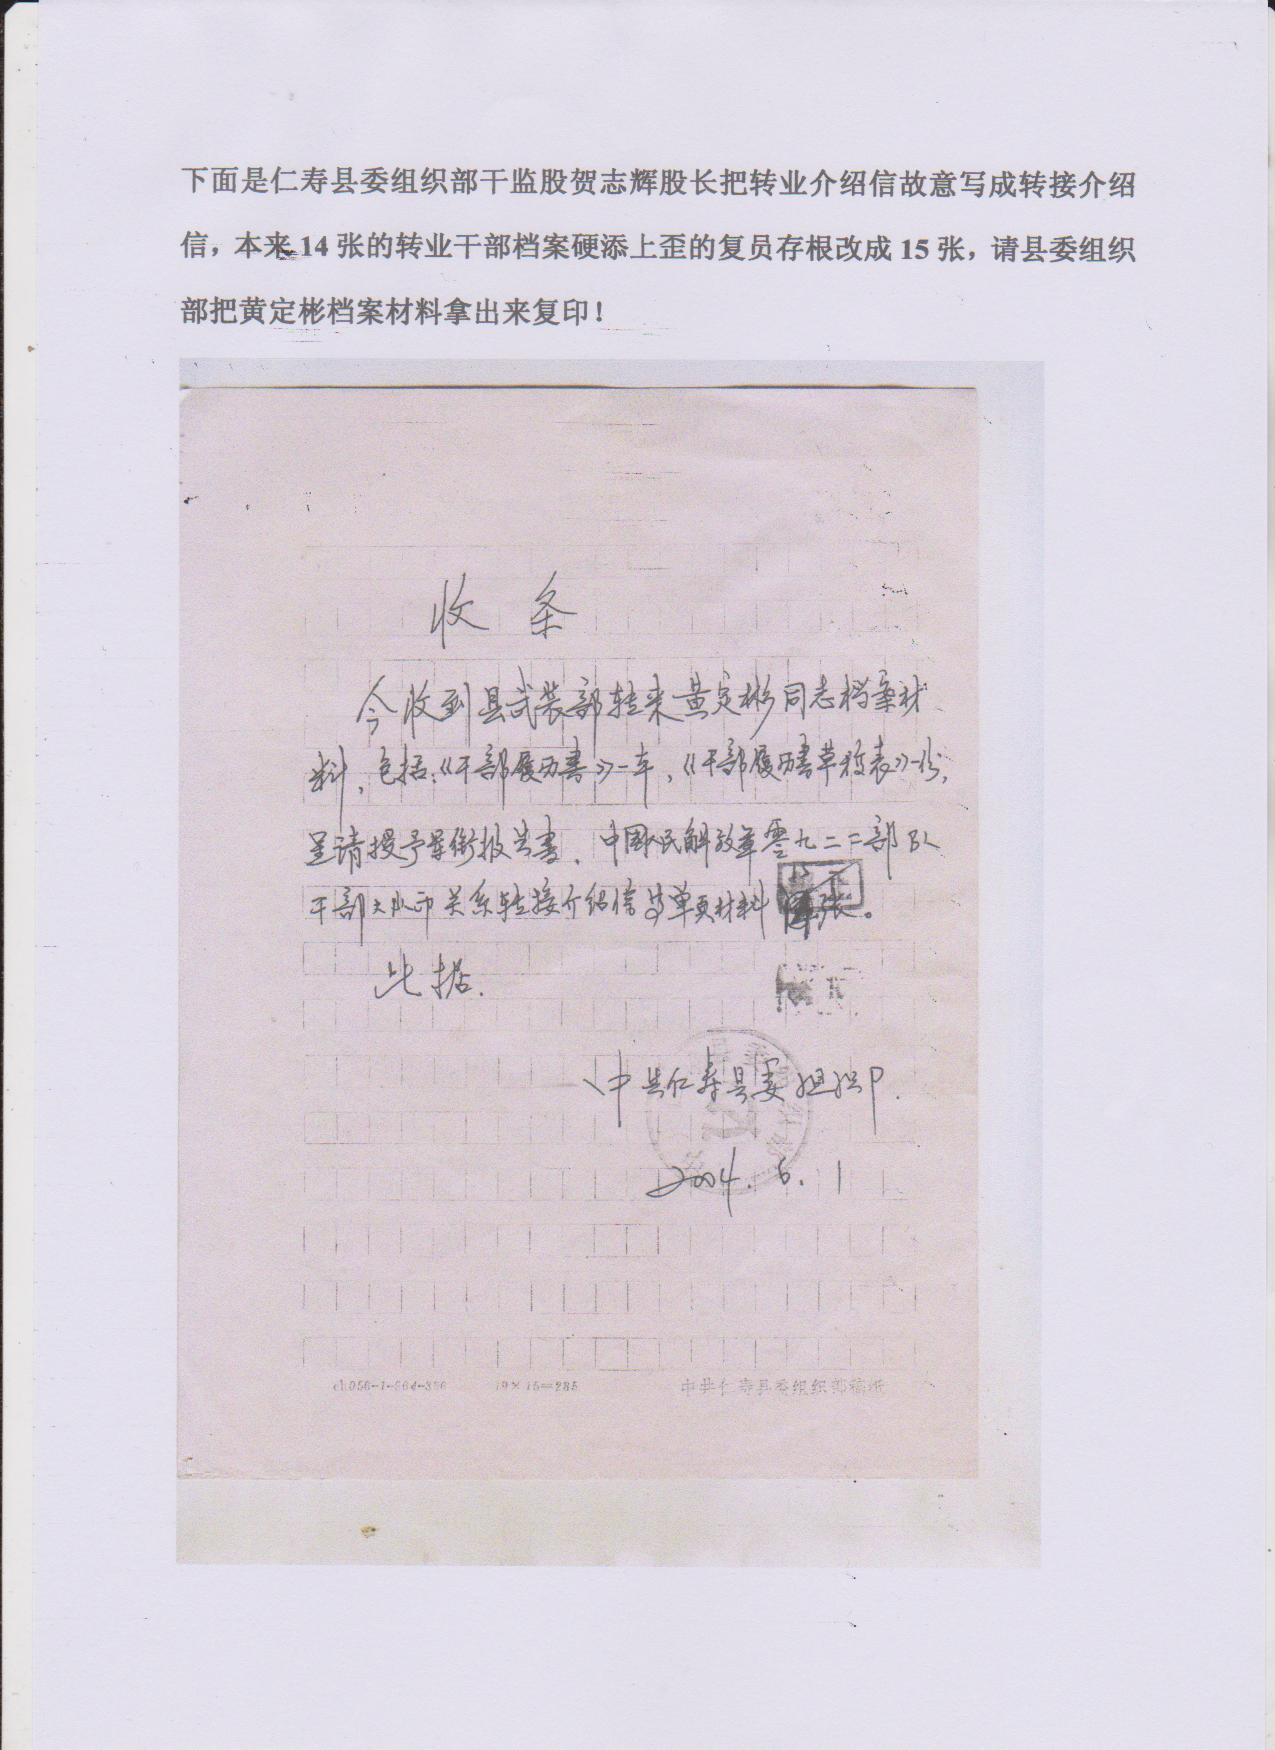 下面是仁寿县委组织部干监股贺志辉股长把转业介绍信故意写成转接介绍
信，本来14张的转业干部档案硬添上歪的复员存根改成15张，请县委组织
部把黄定彬档案材料拿出来复印！
收条
今收到县武装部转来黄定彬同志档案材
料，包括：《干部履历书》一本，《干部履历书草稿表》一份，
呈请授予军衔报告书、中国人民解放军零九二二部队
干部 关系转接介绍信等单页材料 张。
此据.
中共仁寿县委组织P.
2004.6.1
19×15=285 中共仁寿县委组织部稿纸